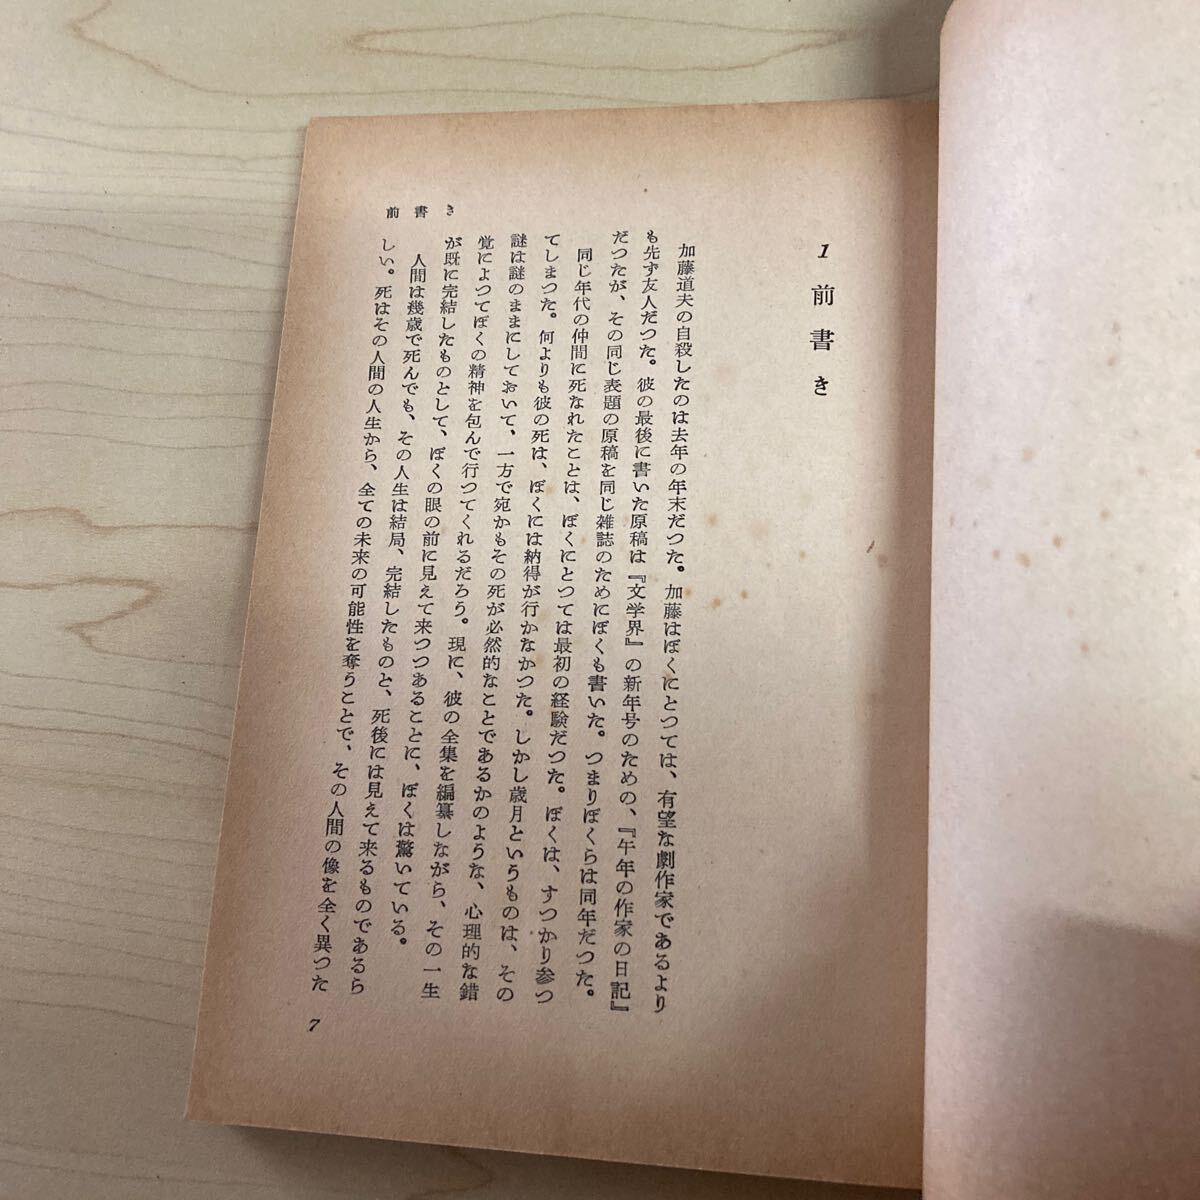 1 前書き
加藤道夫の自殺したのは去年の年末だつた。加藤はぼくにとつては、有望な劇作家であるより
も先ず友人だつた。彼の最後に書いた原稿は『文学界』の新年号のための、『午年の作家の日記』
だつたが、その同じ表題の原稿を同じ雑誌のためにぼくも書いた。つまりぼくらは同年だつた。
同じ年代の仲間に死なれたことは、ぼくにとつては最初の経験だつた。ぼくは、すつかり参つ
てしまつた。何よりも彼の死は、ぼくには納得が行かなかつた。しかし歳月というものは、その
謎は謎のままにしておいて、一方で宛かもその死が必然的なことであるかのような、心理的な錯
覚によつてぼくの精神を包んで行つてくれるだろう。現に、彼の全集を編纂しながら、その一生
が既に完結したものとして、ぼくの眼の前に見えて来つつあることに、ぼくは驚いている。
人間は幾歳で死んでも、その人生は結局、完結したものと、死後には見えて来るものであるら
しい。死はその人間の人生から、全ての未来の可能性を奪うことで、その人間の像を全く異つた
前書き
7